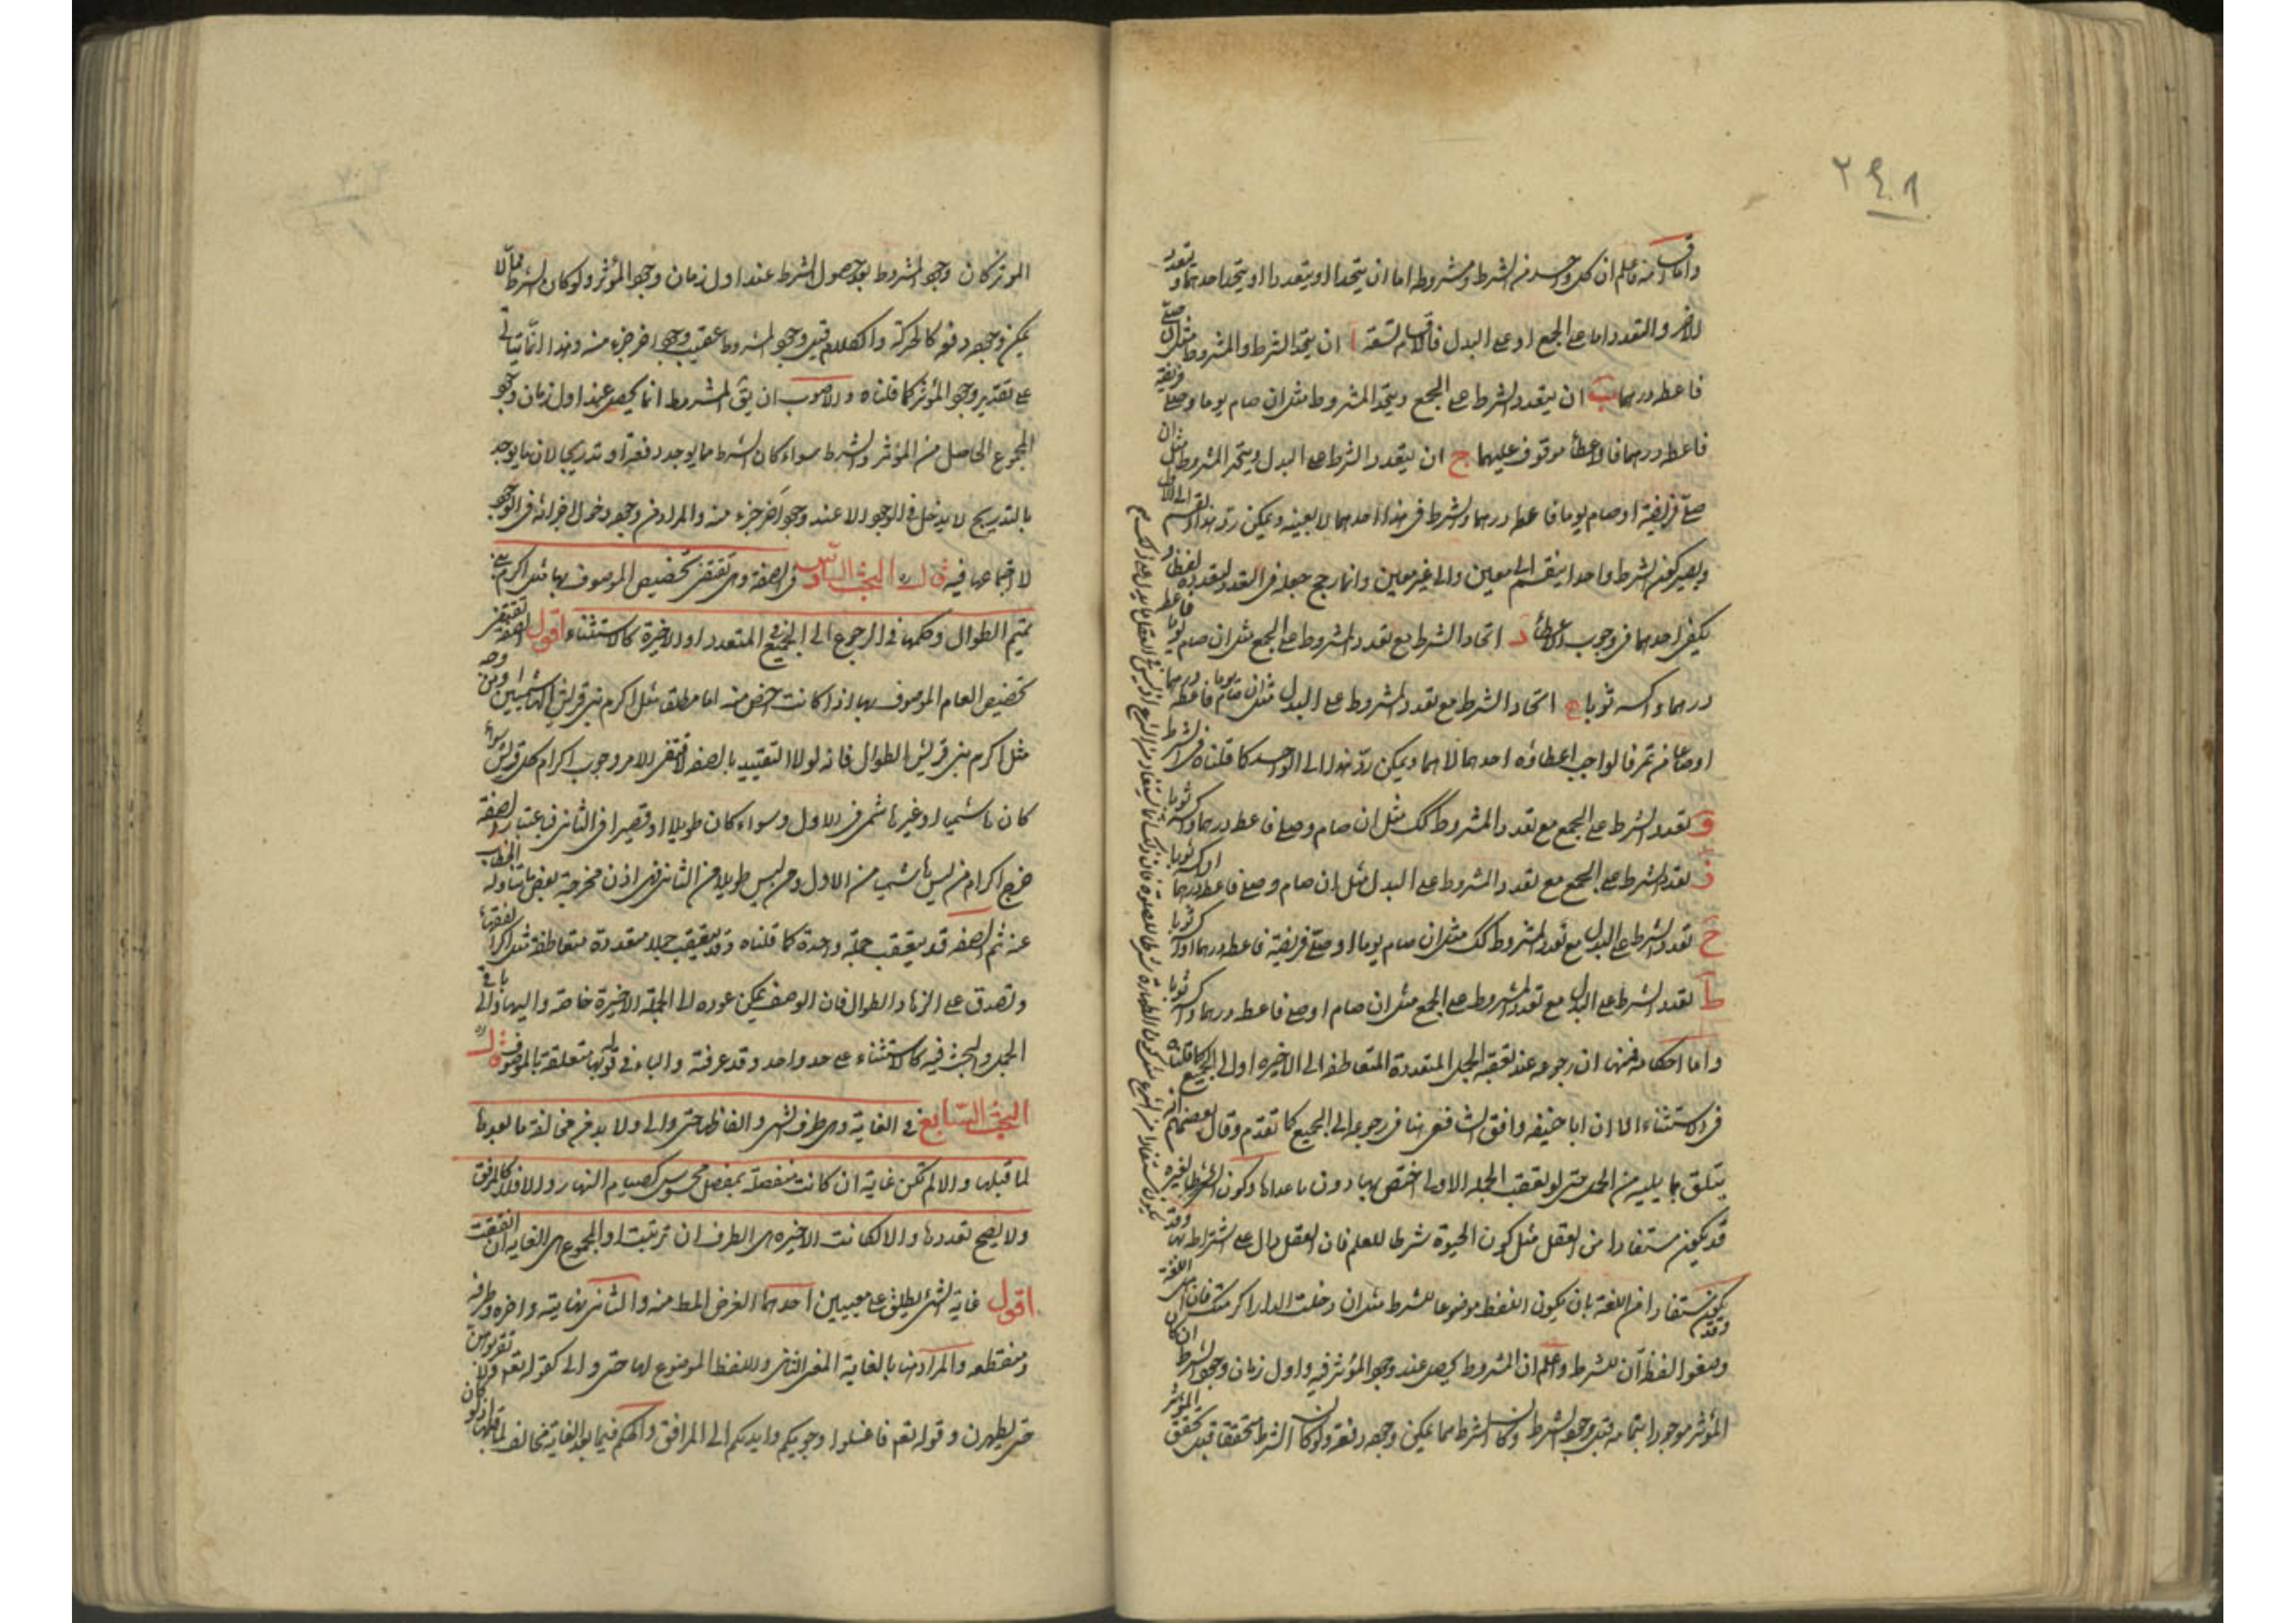 ٢٩٨
واما اقسامه فاعلم ان كل واحد من الشرط ومشروطه اما ان يتحدا او يتعددا او يتحد احدهما و يتعدد
الاخر والمتعدد اما على الجمع او على البدل فالاقسام تسعة ا ان يتحد الشرط والمشروط مثل ان صلى
فاعطه درهما ب ان يتعدد الشرط على الجمع ويتحد المشروط مثل ان صام يوما وصلى فريضة
فاعطه درهما فالاعطأ موقوف عليهما ج ان يتعدد الشرط على البدل ويتحد المشروط مثل ان
صلى فريضة او صام يوما فاعطه درهما والشرط فى هذا احدهما لا بعينه ويمكن رد هذا القسم الى الاول
ويصير كون الشرط واحدا ينقسم الى معين والى غير معين وانما رجح جعله فى التعدد لتعدده لفظا و
يكفى احدهما فى وجوب الاعطأ د اتحاد الشرط مع تعدد المشروط على الجمع مثل ان صام يوما فاعطه
درهما واكسه ثوبا ه اتحاد الشرط مع تعدد المشروط على البدل مثل ان صام يوما فاعطه درهما
او صاعا من تمر فالواجب اعطاؤه احدهما لا هما ويمكن رد هذا الى الواحد كما قلناه فى الشرط
و تعدد الشرط على الجمع مع تعدد المشروط كك مثل ان صام وصلى فاعطه درهما واكسه ثوبا
ز تعدد الشرط على الجمع مع تعدد المشروط على البدل مثل ان صام وصلى فاعطه درهما او اكسه ثوبا
ح تعدد الشرط على البدل مع تعدد المشروط كك مثل ان صام يوما او صلى فريضة فاعطه درهما او اكسه ثوبا
ط تعدد الشرط على البدل مع تعدد المشروط على الجمع مثل ان صام او صلى فاعطه درهما واكسه ثوبا
واما احكامه فمنها ان رجوعه عند تعقبه الجمل المتعددة المتعاطفة الى الاخيرة او الى الجميع كما قلناه
فى الاستثناء الا ان ابا حنيفه وافق الشافعى هنا فى رجوعه الى الجميع كما تقدم وقال بعضهم انه
يتعلق بما يليه من الجمل حتى لو تعقب الجملة الاولى اختص بها دون ما عداها وكون الشرط لغيره
قد يكون مستفادا من العقل مثل كون الحيوة شرطا للعلم فان العقل دال على اشتراطه بها وقد
يكون مستفادا من اللغة بان يكون اللفظ موضوعا للشرط مثل ان دخلت الدار اكرمتك فان اهل اللغة
وضعوا لفظ ان للشرط واعلم ان المشروط يحصل عند وجود المؤثر فيه واول زمان وجود الشرط ان كان
المؤثر موجودا بتمامه قبل وجود الشرط وكان الشرط مما يمكن وجوده دفعة ولو كان الشرط متحققا قبل تحقق المؤثر
الموثر كان وجود المشروط بعد حصول الشرط عند اول زمان وجود المؤثر ولو كان الشرط مما لا
يمكن وجوده دفعة كالحركة والكلام قيل وجود المشروط عقيب وجود اخر جزء منه وهذا انما يتاتى
على تقدير وجود المؤثر كما قلناه والاصوب ان يق المشروط انما يحصل عند اول زمان وجود
المجموع الحاصل من المؤثر والشرط سواء كان الشرط مما يوجد دفعة او تدريجا لان ما يوجد
بالتدريج لا يدخل فى الوجود الا عند وجود آخر جزء منه والمراد من وجوده دخول اجزائه فى الوجود
لا اجتماعها فيه قال البحث السادس فى الصفة وهى تقتضى تخصيص الموصوف بها مثل اكرم بنى
تميم الطوال وحكمها فى الرجوع الى الجميع المتعدد او الاخيرة كالاستثناء اقول الصفة تقتضى
تخصيص العام الموصوف بها اذا كانت اخص منه اما مطلقا مثل اكرم بنى قريش الهاشميين او من وجه
مثل اكرم بنى قريش الطوال فانه لولا التقييد بالصفة لاقتضى الامر وجوب اكرام كل قريش سواء
كان هاشميا او غير هاشمى فى الاول وسواء كان طويلا او قصيرا فى الثانى فباعتبار الصفة
خرج اكرام من ليس هاشميا من الاول ومن ليس طويلا من الثانى فهى اذن مخرجة بعض ما تناوله الخطاب
عنه ثم الصفة قد يتعقب جملة واحدة كما قلناه وقد يتعقب جملا متعددة متعاطفة مثل اكرم الفقهاء
وتصدق على الزهاد الطوال فان الوصف يمكن عوده الى الجملة الاخيرة خاصة واليها والى باقى
الجمل والبحث فيه كالاستثناء على حد واحد وقد عرفته والباء فى قوله بها متعلقة بالموصوف قال
البحث السابع فى الغاية وهى طرف الشى والفاظها حتى والى ولا بد فى مخالفة ما بعدها
لما قبلها والا لم تكن غاية ان كانت منفصلة بمفصل محسوس كصيام النهار والا فلا كالمرفق
ولا يصح تعددها والا لكانت الاخيرة هى الطرف ان ترتبت او المجموع هى الغاية ان اتفقت
اقول غاية الشئ يطلق على معنيين احدهما الغرض المط منه والثانى نهايته واخره وطرفه
ومنقطعه والمراد هنا بالغاية المعنى الثانى واللفظ الموضوع لها حتى والى كقوله تعم ولا تقربوهن
حتى يطهرن وقوله تعم فاغسلوا وجوهكم وايديكم الى المرافق والحكم فيما بعد الغاية مخالف لما قبلها اذ لو كان